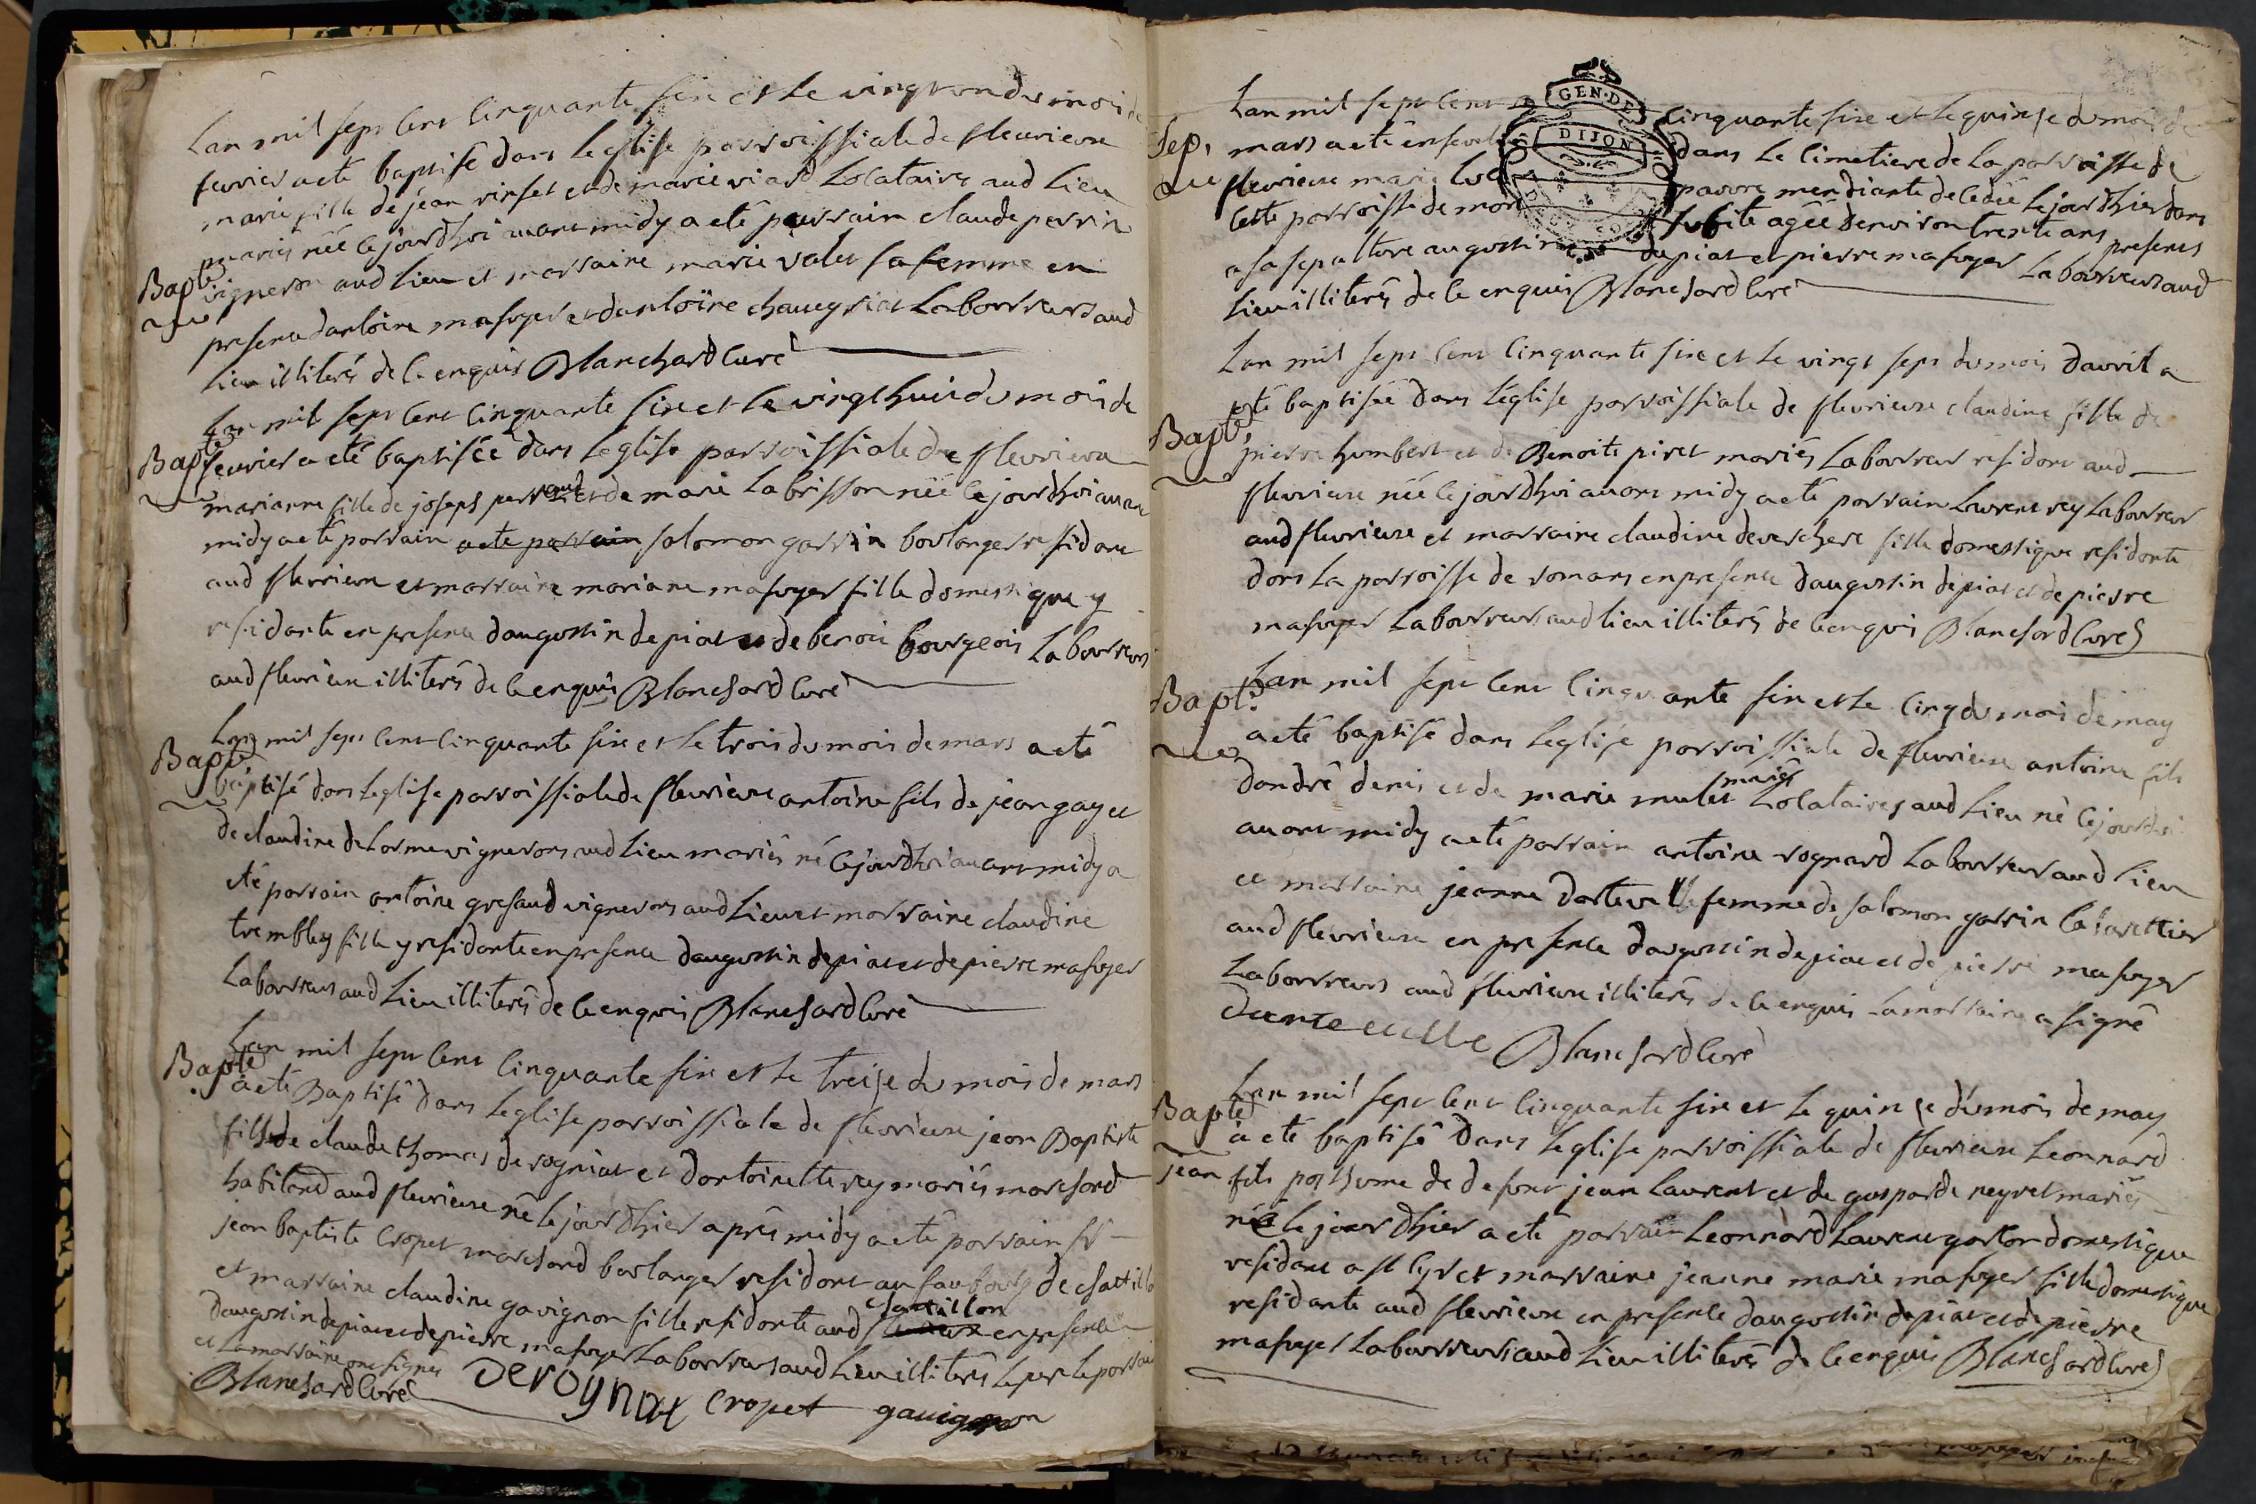 Lan mil sept cent cinquante six et le vingt un du mois de
fevrier a eté baptisé dans leglise parroissiale de fleurieux
marie fille de jean rinfet et de marie viard Locataires aud Lieu
mariés née cejourdhoi avant midy a eté parrain claude perrin
Bapte
vigneron aud Lieu et marraine marie valet sa femme en
presence dantoine masuyer et dantoine chaneyriat Laboureurs aud
Lieu illiterés de ce enquis Blanchard curé
Lan mil sept cent cinquante six et le vingthuit du mois de
Bapte
fevrier a eté baptisée dans leglise parroissiale de fleurieux
marianne fille de joseph perraud et de marie Labrisson née cejourdhoi avant
midy a eté parrain a eté parrain salomon garrin boulanger residant
aud fleurieux et marraine mariane masuyer fille domestique y
residante en presence daugustin depiat et de benoit bourgeois Laboureurs
aud fleurieux illiterés de ce enquis Blanchard curé
Lan mil sept cent cinquante six et le trois du mois de mars a eté
Bapte
baptisé dans leglise parroissiale de fleurieux antoine fils de jean gay et
de claudine delorme vignerons aud Lieu mariés né cejourdhoi avant midy a
eté parrain antoine gresaud vigneron aud Lieu et marraine claudine
trembley fille y residante en presence daugustin depiat et de pierre masuyer
Laboureurs aud Lieu illiterés de ce enquis Blanchard curé
Lan mil sept cent cinquante six et le treize du mois de mars
Bapte
a eté Baptisé dans leglise parroissiale de fleurieux jean Baptiste
fils de claude thomas derogniat et dantoinette rey mariés marchand
habitand aud fleurieux né le jour dhier après midy a eté parrain sr
jean baptiste cropet marchand boulanger residant au faubourg de chatillon
et marraine claudine gavignon fille residante aud chatillon en presence
daugustin depiat et de pierre masuyer Laboureurs aud Lieu illiterés le pere le parrain
et La marraine ont signés
Blanchard curé Deroynat cropet gauignon
Lan mil sept cent cinquante six et le quinze du mois de
GEN·DE
DIJON
Sep,
mars a eté ensevelie dans le cimetiere de La parroisse de
fleurieux marie pauvre mendiante decedée le jour dhier dans
cette parroisse de mort subite agée denviron trente ans presents
a sa sepulture augustin depiat et pierre masuyer Laboureurs aud
Lieu illiterés de ce enquis Blanchard curé
Lan mil sept cent cinquante six et le vingt sept du mois davril a
Bapte,
eté baptisée dans léglise parroissiale de fleurieux claudine fille de
pierre humbert et de Benoite piret mariés Laboureur residant aud
fleurieux née cejourdhoi avant midy a eté parrain Laurent rey Laboureur
aud fleurieux et marraine claudine deveschere fille domestique residante
dans La parroisse de romans en presence daugustin depiat et de pierre
masuyer Laboureurs aud lieu illiterés de ce enquis Blanchard curé
Lan mil sept cent cinquante six et le cinq du mois de may
Bapte
a eté baptisé dans leglise parroissiale de fleurieux antoine fils
dandré denis et de marie mulet mariés Locataires aud Lieu né cejourdhoi
avant midy a eté parrain antoine rognard Laboureur aud Lieu
et marraine jeanne dortevelle femme de salomon garrin cabarettier
aud fleurieux en presence daugustin depiat et de pierre masuyer
Laboureurs aud fleurieux illiterés de ce enquis La marraine a signé
Blanchard curé
Lan mil sept cent cinquante six et le quinze du mois de may
Bapte
a eté baptisé dans leglise parroissiale de fleurieux Leonnard
jean fils posthume de defunt jean Laurent et de gasparde neyret mariés
né le jour dhier a eté parrain Leonnard Laurent garçon domestique
residant a st cyr et marraine jeanne marie masuyer fille domestique
residante aud fleurieux en presence daugustin depiat et de pierre
masuyer Laboureurs aud Lieu illiterés de ce enquis Blanchard curé